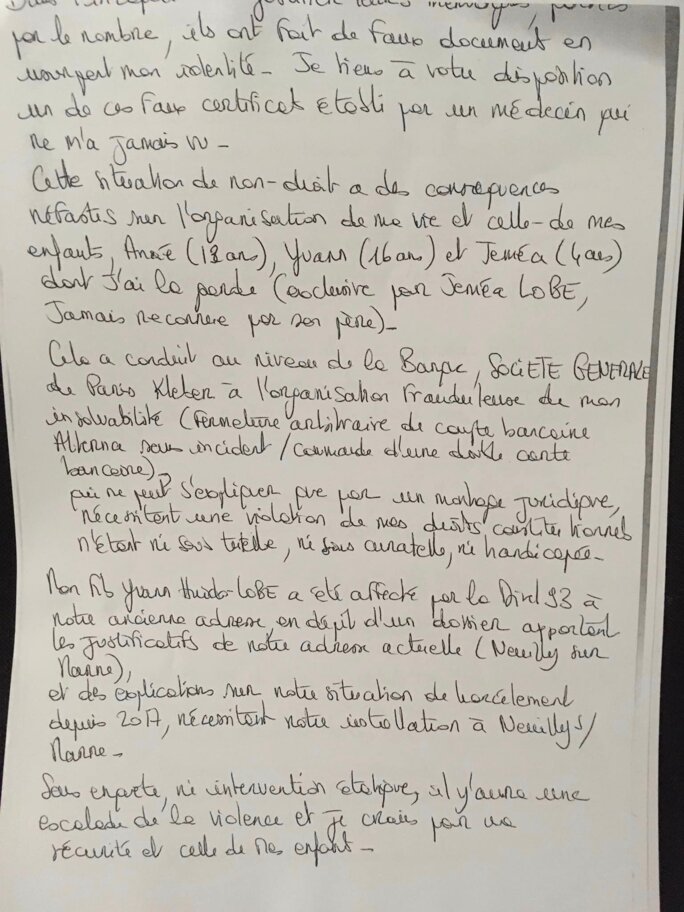 par le nombre, ils ont fait de faux document en
usurpant mon identité - Je tiens à votre disposition
un de ces faux certificat établi par un médecin qui
ne m'a jamais vu -
Cette situation de non-droit a des conséquences
néfastes sur l'organisation de ma vie et celle-de mes
enfants, Année (18 ans), Yvann (16 ans) et Jeméa (4 ans)
dont J'ai la garde (exclusive par Jeméa LOBE,
Jamais reconnue par son père) -
Cela a conduit au niveau de la Banque, SOCIETE GENERALE
de Paris Kleber à l'organisation frauduleuse de mon
insolvabilité (fermeture arbitraire de compte bancaire
Alterna sans incident / commande d'une double carte
bancaire) -
qui ne peut s'expliquer que par un montage juridique,
nécessitant une violation de mes droits constitutionnels
n'étant ni sous tutelle, ni sous curatelle, ni handicapée -
Mon fils Yvann LOBE a été affecté par la Divel 93 à
notre ancienne adresse, en dépit d'un dossier apportant
les justificatifs de notre adresse actuelle (Neuilly sur
Marne),
et des explications sur notre situation de harcèlement
depuis 2017, nécessitant notre installation à Neuilly s/
Marne -
Sans enquête, ni intervention étatique, il y'aura une
escalade de la violence et je crains pour ma
sécurité et celle de mes enfant -